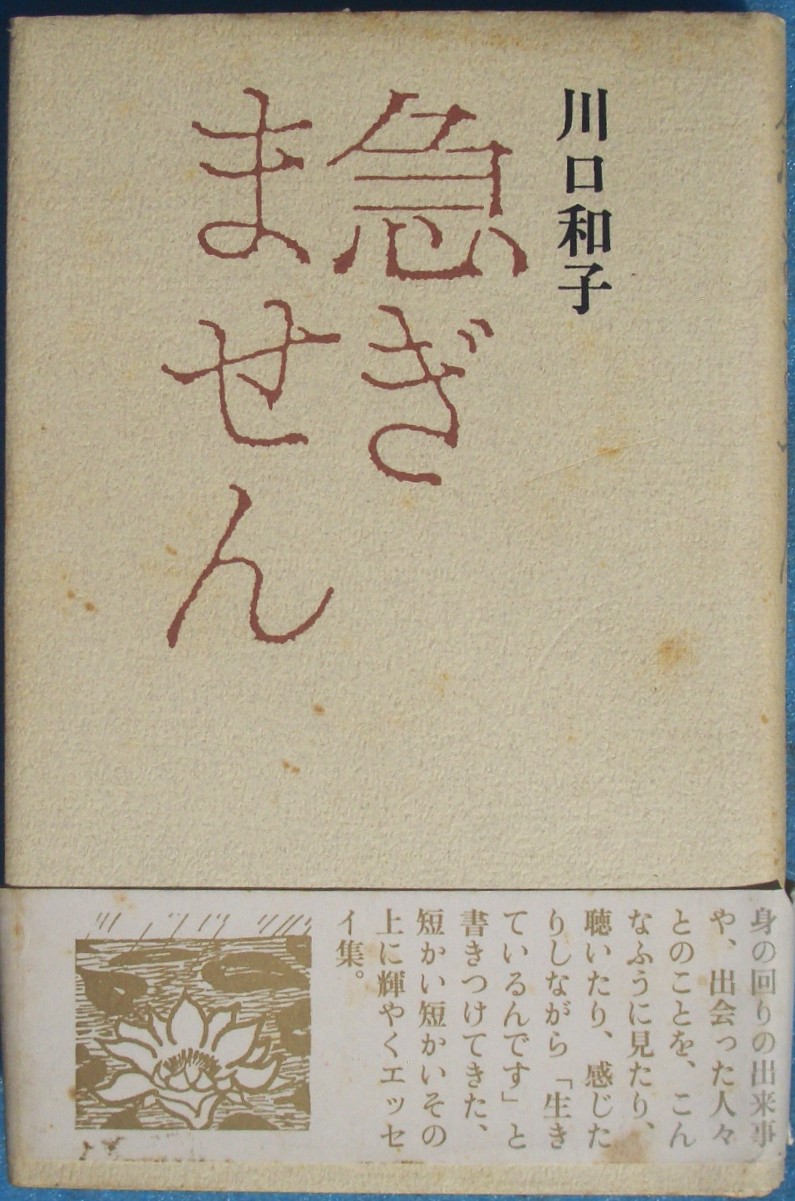 川口和子
急ぎ
ません
身の回りの出来事
や、出会った人々
とのことを、こん
なふうに見たり、
聴いたり、感じた
りしながら「生き
ているんです」と
書きつけてきた、
短かい短かいその
上に輝やくエッセ
イ集。